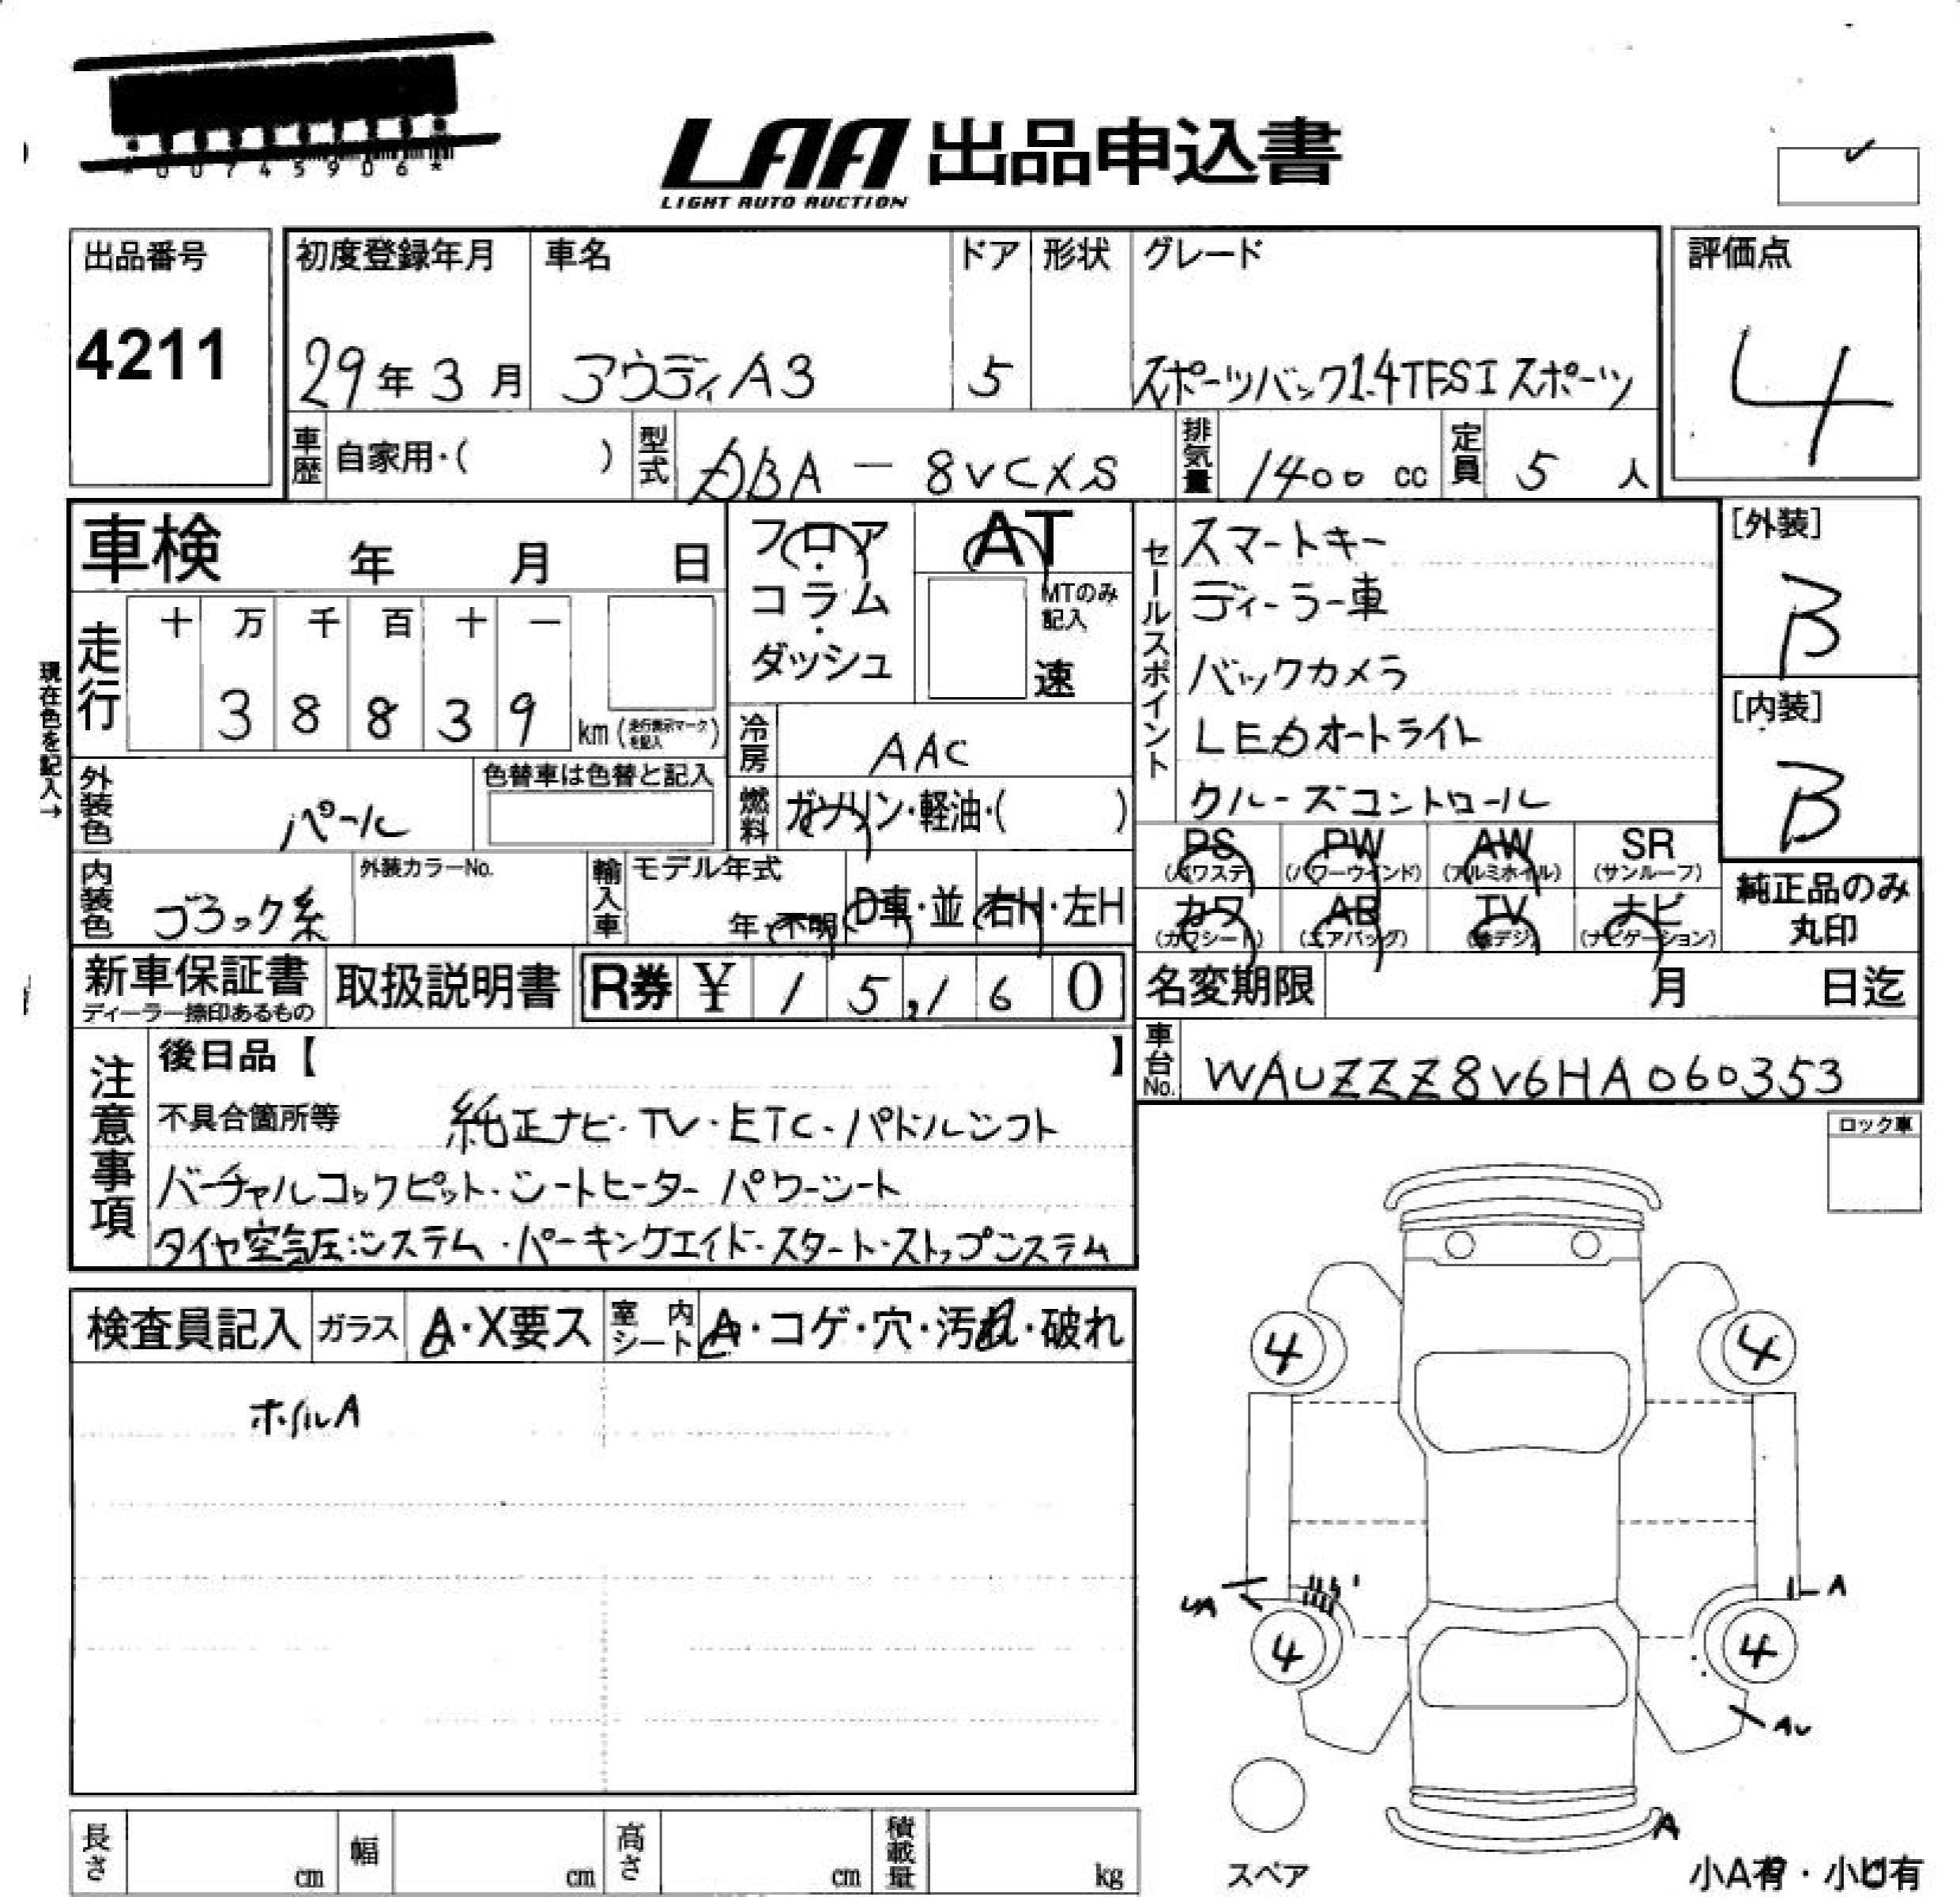 *00745906*
LAA 出品申込書
LIGHT AUTO AUCTION
出品番号
4211
初度登録年月
29年3月
車名
アウディA3
ドア
5
形状
グレード
スポーツバック1.4TFSIスポーツ
評価点
4
車歴 自家用・( )
型式 DBA-8VCXS
排気量 1400 cc
定員 5 人
車検 年 月 日
フロア・コラム・ダッシュ
AT
MTのみ記入
速
セールスポイント
スマートキー
ディーラー車
バックカメラ
LEDオートライト
クルーズコントロール
[外装]
B
[内装]
B
現在色を記入→
走行
十 万 千 百 十 一
3 8 8 3 9 km (走行表示マークを記入)
冷房 AAC
外装色 パール
色替車は色替と記入
燃料 ガソリン・軽油・( )
PS (パワステ) PW (パワーウインド) AW (アルミホイル) SR (サンルーフ)
カワ (カワシート) AB (エアバッグ) TV (地デジ) ナビ (ナビゲーション)
純正品のみ
丸印
内装色 ブラック系
外装カラーNo.
輸入車 モデル年式
年・不明 D車・並 右H・左H
新車保証書
ディーラー捺印あるもの
取扱説明書
R券 ¥ 1 5,1 6 0
名変期限 月 日迄
車台No. WAUZZZ8V6HA060353
注意事項
後日品【 】
不具合箇所等 純正ナビ・TV・ETC・パドルシフト
バーチャルコックピット・シートヒーター パワーシート
タイヤ空気圧システム・パーキングエイド・スタート・ストップシステム
ロック車
検査員記入 ガラス A・X要ス 室内シート A・コゲ・穴・汚れ・破れ
ホイルA
4 4
A
4 4
AU
A
スペア
小A有・小U有
長さ cm 幅 cm 高さ cm 積載量 kg